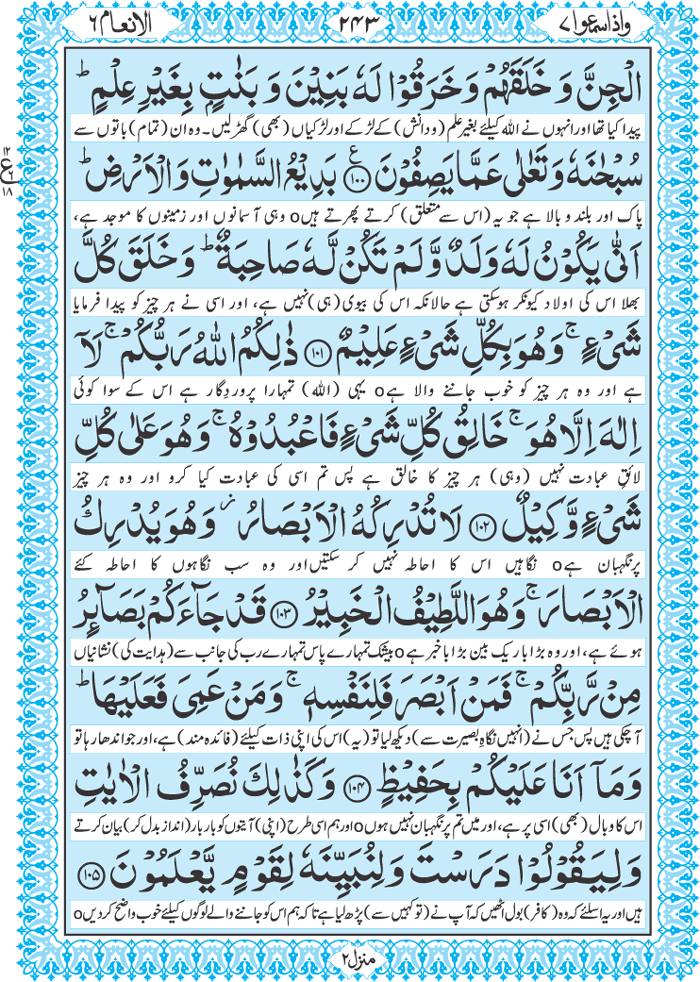 الانعام ٦ ٢٤٣ واذا سمعوا ٧
الْجِنَّ وَ خَلَقَهُمْ وَ خَرَقُوْا لَهٗ بَنِيْنَ وَ بَنٰتٍۭ بِغَيْرِ عِلْمٍ ؕ
پیدا کیا تھا اور انہوں نے اللہ کیلئے بغیر علم (ودانش) کے لڑکے اور لڑکیاں (بھی) گھڑ لیں۔ وہ ان (تمام) باتوں سے
سُبْحٰنَهٗ وَ تَعٰلٰى عَمَّا يَصِفُوْنَ ۧ﴿١٠٠﴾ بَدِيْعُ السَّمٰوٰتِ وَ الْاَرْضِ ؕ
ع ١٢ ١٨
پاک اور بلند و بالا ہے جو یہ (اس سے متعلق) کرتے پھرتے ہیںo وہی آسمانوں اور زمینوں کا موجد ہے،
اَنّٰى يَكُوْنُ لَهٗ وَلَدٌ وَّ لَمْ تَكُنْ لَّهٗ صَاحِبَةٌ ؕ وَ خَلَقَ كُلَّ
بھلا اس کی اولاد کیونکر ہوسکتی ہے حالانکہ اس کی بیوی (ہی) نہیں ہے، اور اسی نے ہر چیز کو پیدا فرمایا
شَیْءٍ ۚ وَ هُوَ بِكُلِّ شَیْءٍ عَلِيْمٌ ﴿١٠١﴾ ذٰلِكُمُ اللّٰهُ رَبُّكُمْ ۚ لَاۤ
ہے اور وہ ہر چیز کو خوب جاننے والا ہےo یہی (اللہ) تمہارا پروردگار ہے اس کے سوا کوئی
اِلٰهَ اِلَّا هُوَ ۚ خَالِقُ كُلِّ شَیْءٍ فَاعْبُدُوْهُ ۚ وَ هُوَ عَلٰى كُلِّ
لائقِ عبادت نہیں (وہی) ہر چیز کا خالق ہے پس تم اسی کی عبادت کیا کرو اور وہ ہر چیز
شَیْءٍ وَّكِيْلٌ ﴿١٠٢﴾ لَا تُدْرِكُهُ الْاَبْصَارُ ؗ وَ هُوَ يُدْرِكُ
پر نگہبان ہےo نگاہیں اس کا احاطہ نہیں کر سکتیں اور وہ سب نگاہوں کا احاطہ کئے
الْاَبْصَارَ ۚ وَ هُوَ اللَّطِيْفُ الْخَبِيْرُ ﴿١٠٣﴾ قَدْ جَآءَكُمْ بَصَآىِٕرُ
ہوئے ہے، اور وہ بڑا باریک بین بڑا باخبر ہےo بیشک تمہارے پاس تمہارے رب کی جانب سے (ہدایت کی) نشانیاں
مِنْ رَّبِّكُمْ ۚ فَمَنْ اَبْصَرَ فَلِنَفْسِهٖ ۚ وَ مَنْ عَمِیَ فَعَلَيْهَا ؕ
آچکی ہیں پس جس نے (انہیں نگاہِ بصیرت سے) دیکھ لیا تو (یہ) اس کی اپنی ذات کیلئے (فائدہ مند) ہے، اور جو اندھا رہا تو
وَ مَاۤ اَنَا عَلَيْكُمْ بِحَفِيْظٍ ﴿١٠٤﴾ وَ كَذٰلِكَ نُصَرِّفُ الْاٰيٰتِ
اس کا وبال (بھی) اسی پر ہے، اور میں تم پر نگہبان نہیں ہوںo اور ہم اسی طرح (اپنی) آیتوں کو بار بار (انداز بدل کر) بیان کرتے
وَ لِيَقُوْلُوْا دَرَسْتَ وَ لِنُبَيِّنَهٗ لِقَوْمٍ يَّعْلَمُوْنَ ﴿١٠٥﴾
ہیں اور یہ اسلئے کہ وہ (کافر) بول اٹھیں کہ آپ نے (تو کہیں سے) پڑھ لیا ہے تاکہ ہم اس کو جاننے والے لوگوں کیلئے خوب واضح کردیںo
منزل ٢